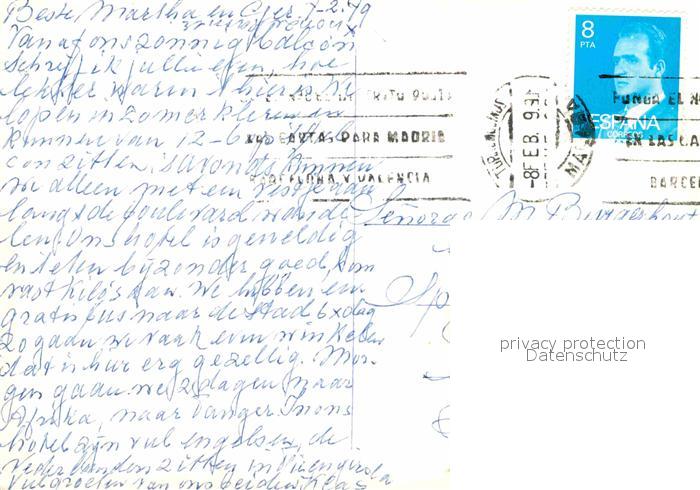 Beste Martha en Cier 7-2-79
Vanaf ons zonnig balcon
Schrijf ik jullie even, hoe
lekker warm 't hier is. We
lopen in zomer kleren en
kunnen van 12-6 op 't bal
con zitten, s'avonds kunnen
we alleen met een vestje aan
langs de boulevard wandelen
ons hotel is geweldig
en eten bijzonder goed, kom
vast kilo's aan. We hebben een
gratis bus naar de stad 6x dag
zo gaan we vaak even winkelen
dat is hier erg gezellig. Mor-
gen gaan we 2 dagen naar
Afrika, naar Tanger. In ons
hotel zijn veel engelsen, de
Nederlanders zitten in
Veel groeten van ons beiden Klas
8
PTA
ESPAÑA
CORREOS
-8 FEB. 9
MA
PONGA EL N
EN LAS CA
BARCEL
CARTAS PARA MADRID
BARCELONA Y VALENCIA
Señora M
Sp
privacy protection
Datenschutz